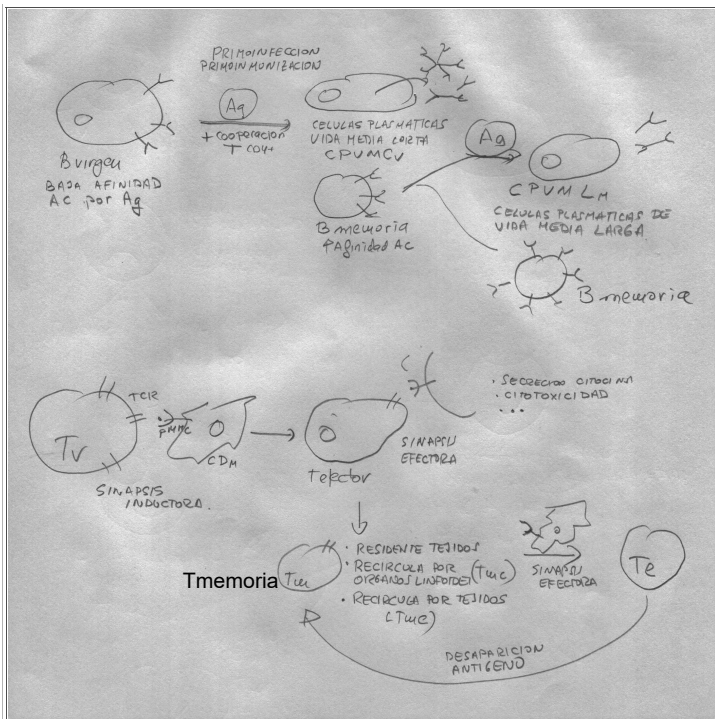 PRIMOINFECCION
PRIMOINMUNIZACION
Ag
+ cooperacion
T CD4+
B virgen
BAJA AFINIDAD
AC por Ag
CELULAS PLASMATICAS
VIDA MEDIA CORTA
CPVMCV
B memoria
↑Afinidad AC
Ag
CPVM LM
CELULAS PLASMATICAS DE
VIDA MEDIA LARGA
B memoria
TCR
Tv
PMHC
CDM
SINAPSIS
INDUCTORA.
Tefector
SINAPSIS
EFECTORA
· SECRECION CITOCINA
· CITOTOXICIDAD
...
Tmemoria
Tm
· RESIDENTE TEJIDOS
· RECIRCULA POR
ORGANOS LINFOIDES (Tmc)
· RECIRCULA POR TEJIDOS
(Tme)
SINAPSIS
EFECTORA
Te
DESAPARICION
ANTIGENO